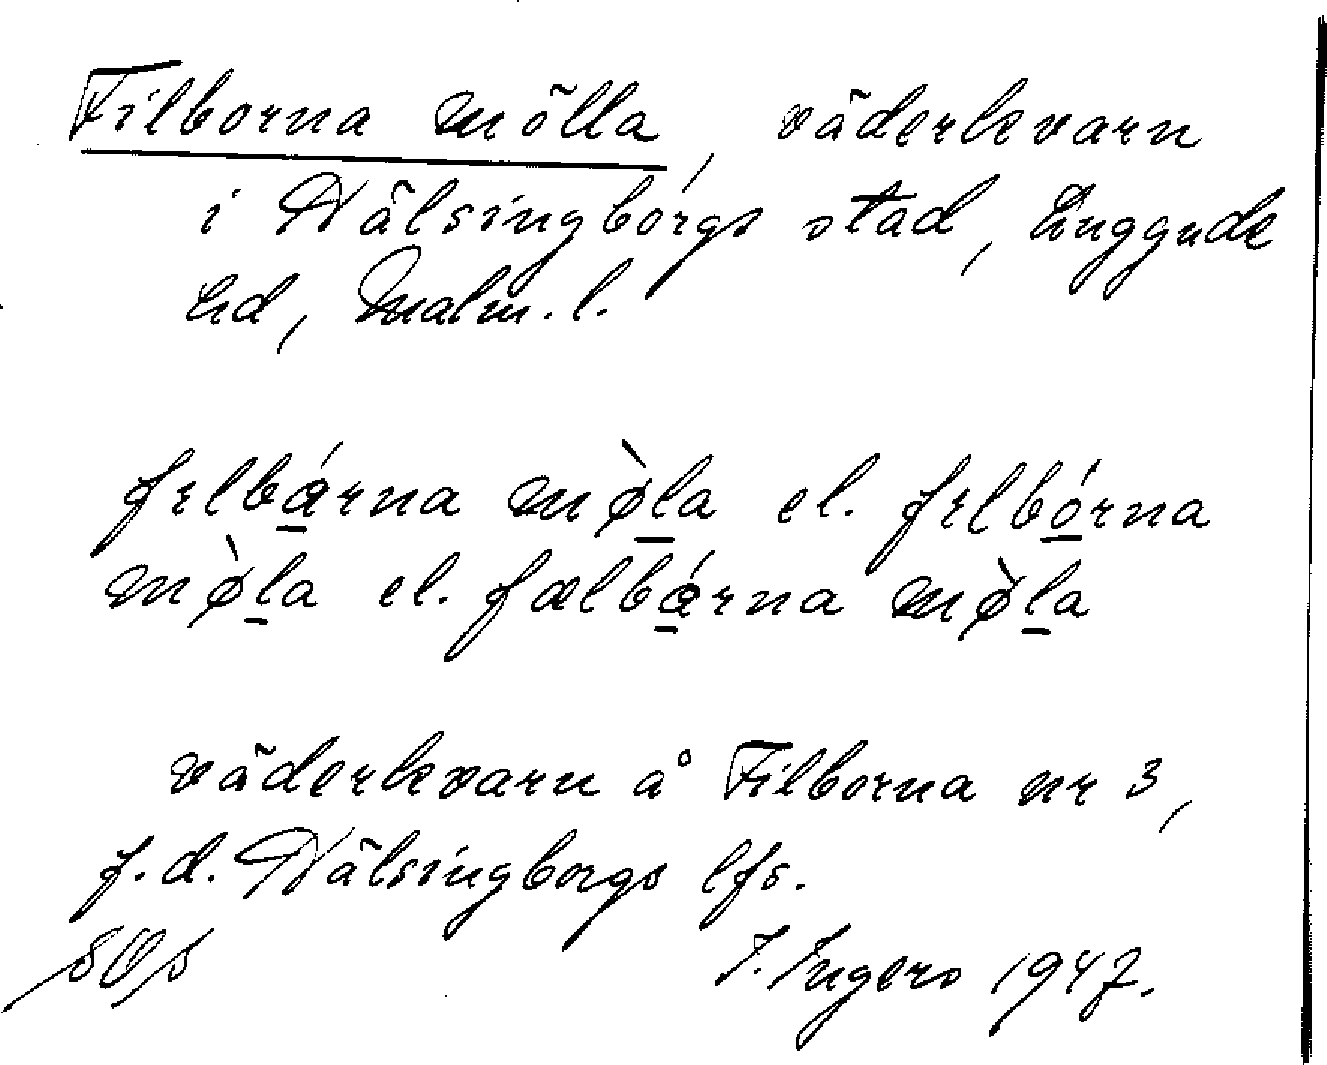 Filborna mölla, väderkvarn
i Hälsingborgs stad, Luggude
hd, Malm. l.
felbɑ́rna mø̀la el. felbórna
mø̀la el. fælbɑ́rna mø̀la
väderkvarn å Filborna nr 3,
f.d. Hälsingborgs lfs.
I. Ingers 1947.